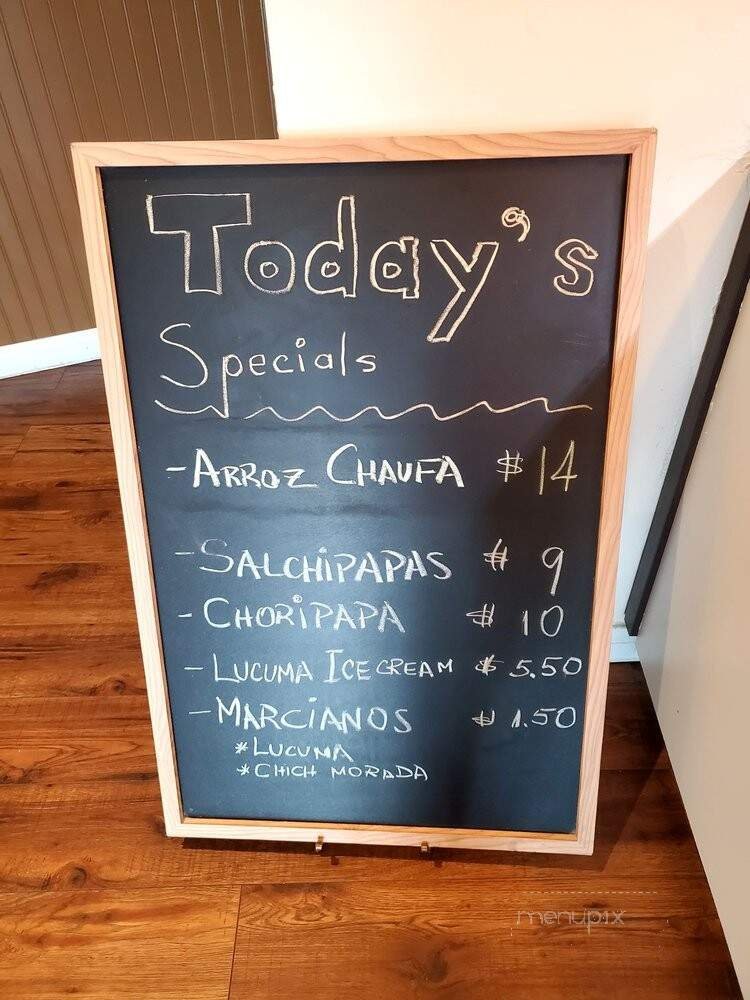 Today's
Specials
- ARROZ CHAUFA $14
- SALCHIPAPAS $ 9
- CHORIPAPA $ 10
- LUCUMA ICE CREAM $ 5.50
- MARCIANOS $ 1.50
* LUCUMA
* CHICH MORADA
menupix